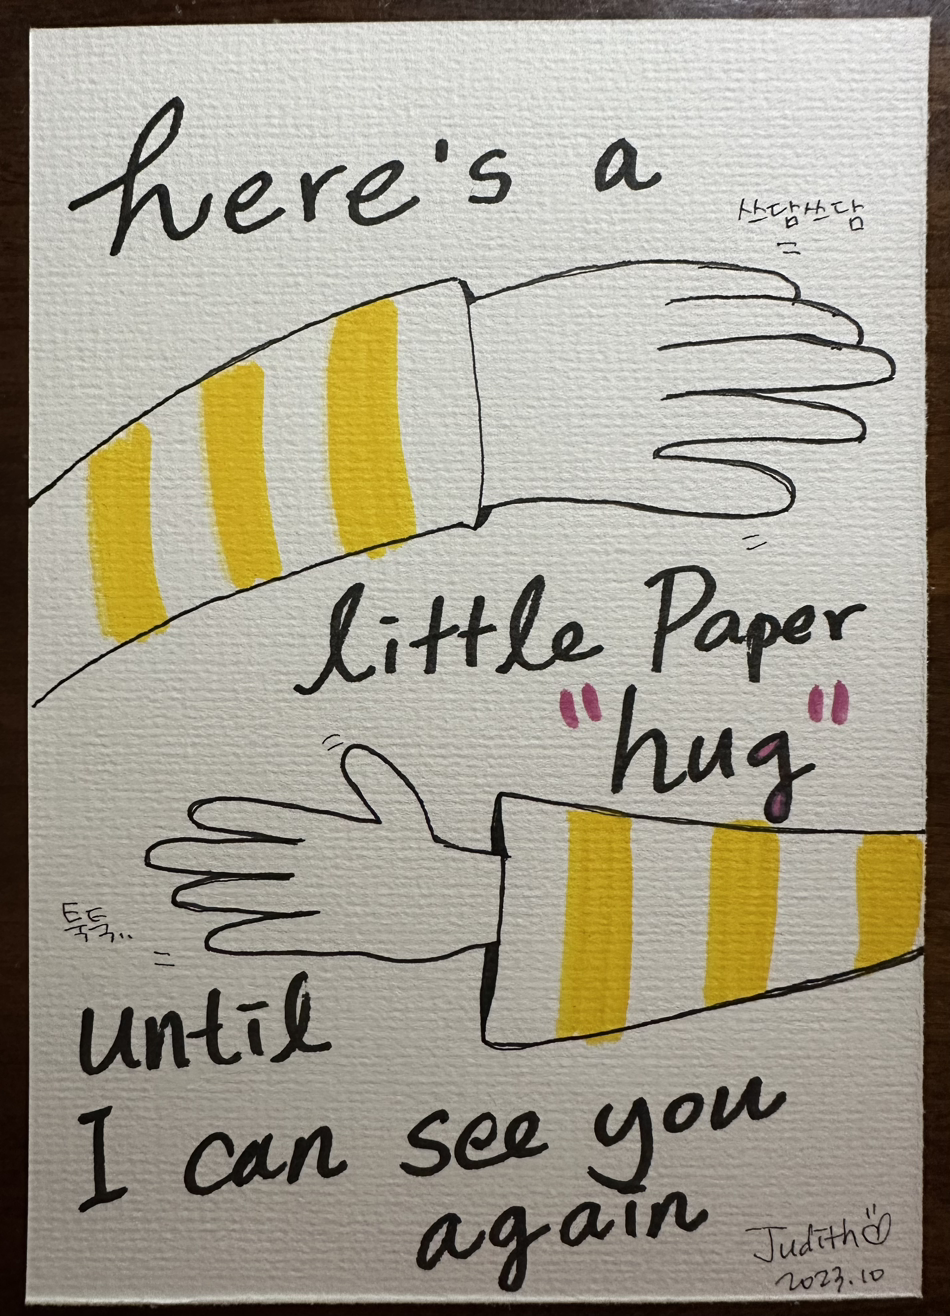 here's a
쓰담쓰담
little Paper
"hug"
툭툭..
until
I can see you
again
Judith
2023.10